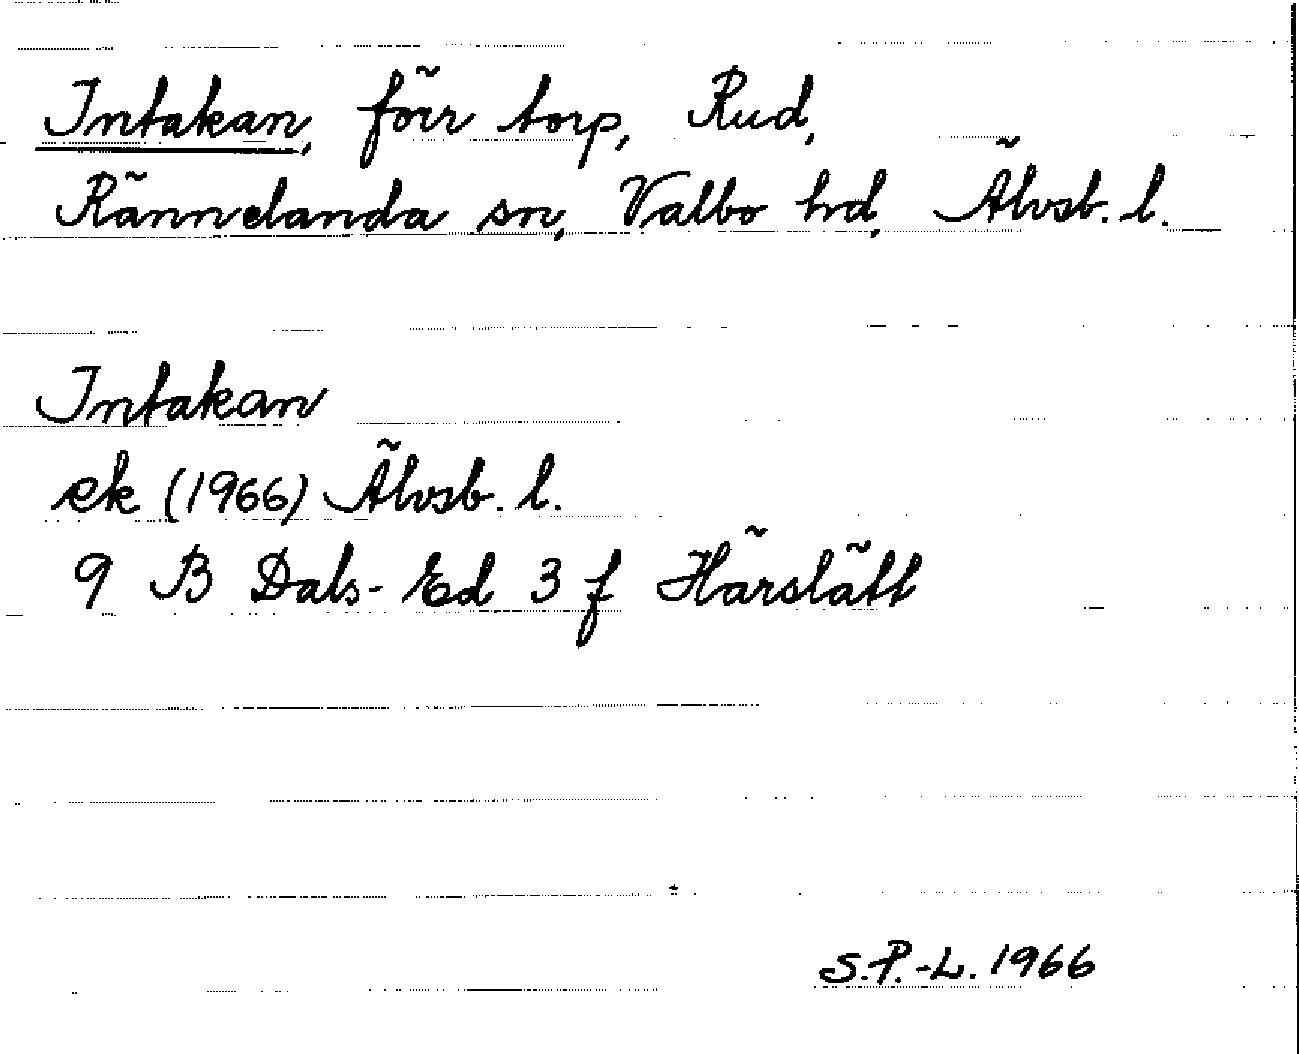 Intakan, förr torp, Rud,
Rännelanda sn, Valbo hd, Älvsb. l.
Intakan
ek (1966) Älvsb. l.
9 B Dals-Ed 3 f Härslätt
S.P.-L. 1966